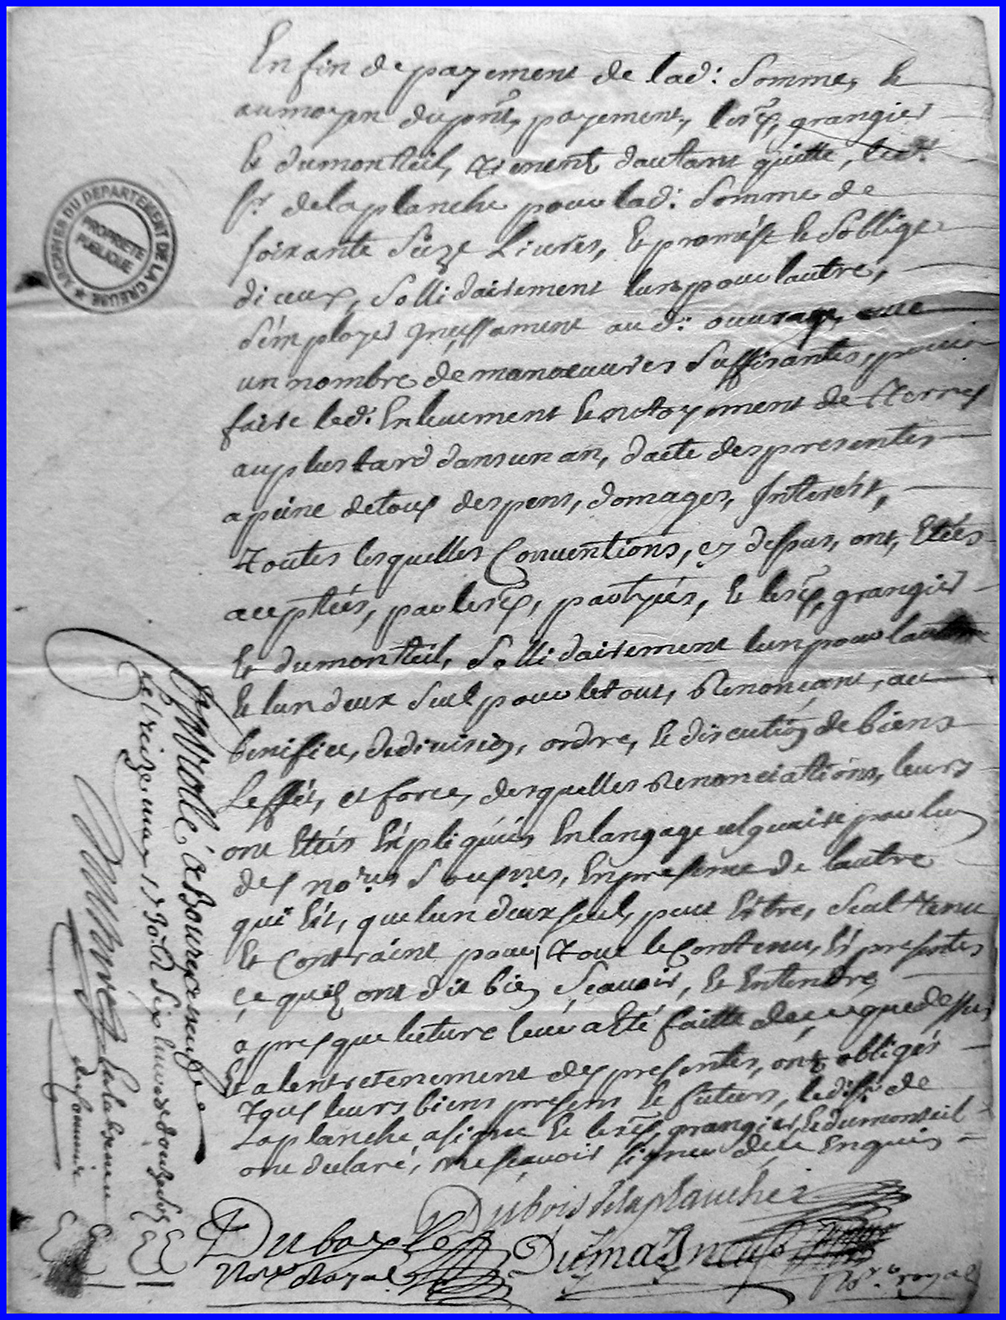 En fin de payement de lad: somme, &
au moyen du pnt, payement, lesd, grangier
Et dumonteil, tienent dautant quitte, led:
sr. delaplanche pour lad: somme de
soixante seize Livres, Et promest Et soblige
diceux, sollidairement lun pour lautre,
sémployer au d: ouvrage, avec
un nombre de manoeuvres suffisantes, pour
faire led: Enlevement Et netoyement de terres
au plus tard dans un an, datte des presentes
a peine de tous despens, domages, Interest,
toutes lesquelles Conventions, cy dessus, ont, Etées
aceptéés, par lesd, partyes, Et lesd, grangier
Et dumonteil, sollidairement lun pour lautre
Et lun deux seul pour le tout, Renonçant, au
benifice, de division, ordre, Et discution de biens
Leffét, et force, desquelles Renonciations, leurs
ont Etés Expliquéés En langage par lun
des nores En presence de lautre
qui Est, que lun deux seul, peut Estre, seul tenu
Et Contraint pour tout le Contenu, Es presentes
ce quils ont dit bien sçavoir, Et Entendre
apres que lecture leur a Eté faitte de ce que dessus
Et a lentretenement des presentes, ont obligés
tous leurs biens presens Et futurs, led: sr: de
Laplanche a signé Et lesd, grangier, Et dumonteil
ont declaré, ne sçavoir signer de ce Enquis
Dubois delaplanche
Nore Royal
Nore royal
Controllé a Bourganeuf
le treize mars 1730
ARCHIVES DU DEPARTEMENT DE LA CREUSE
PROPRIETE
PUBLIQUE